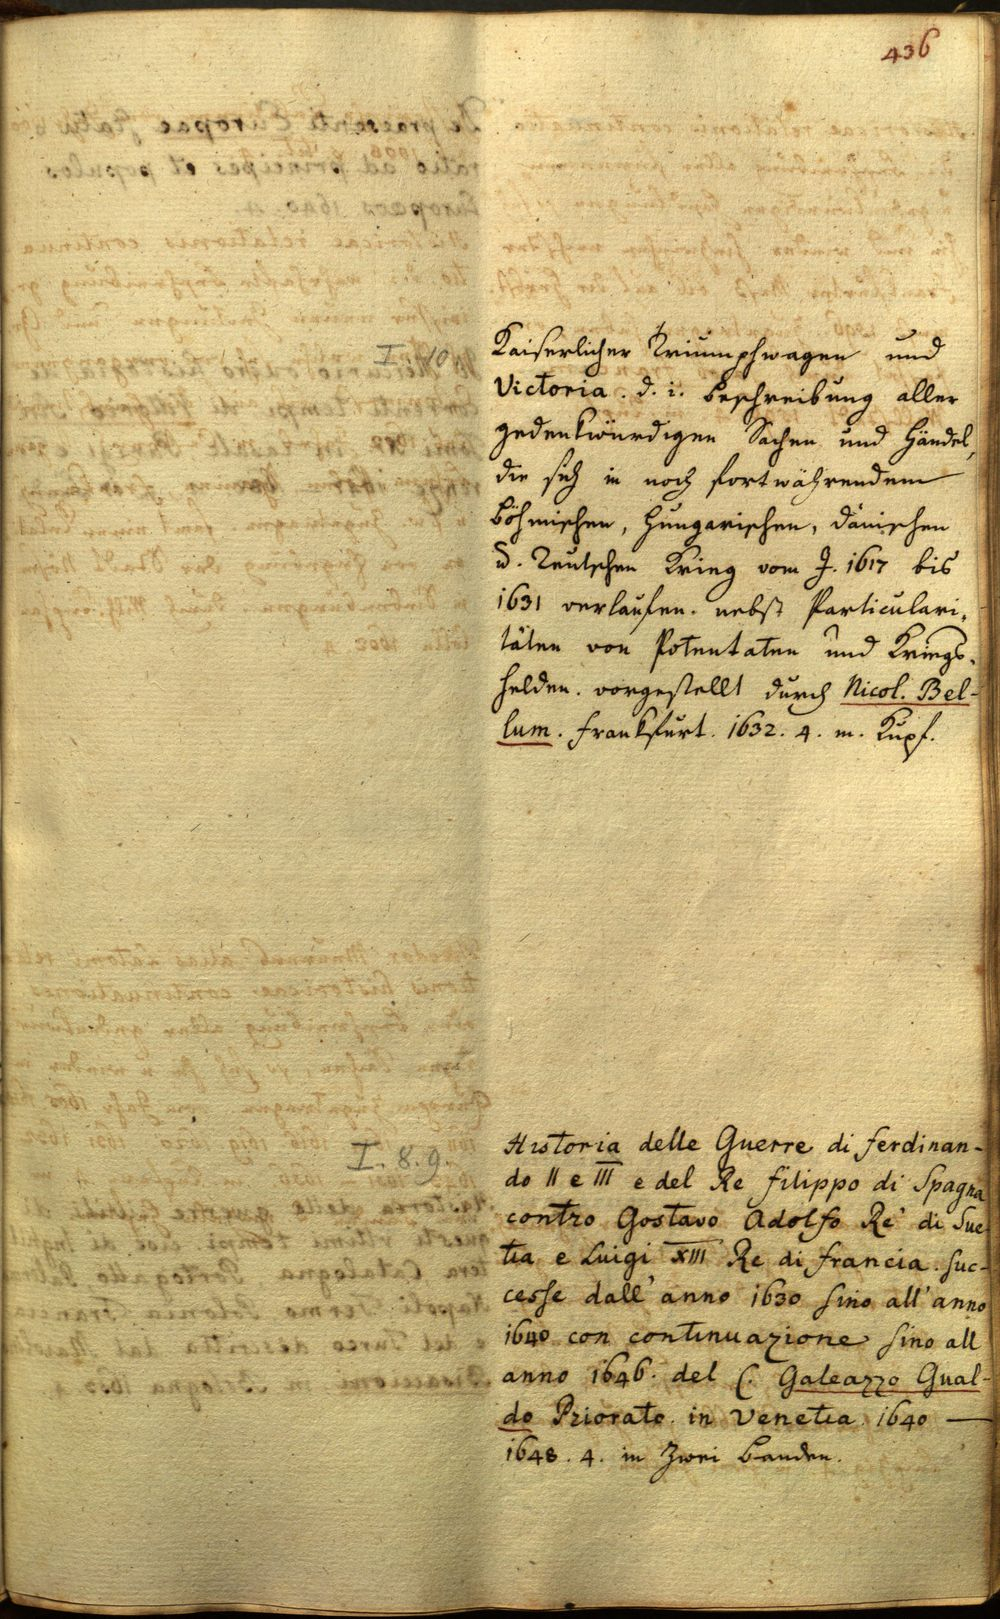 436
I 10.
Kaiserlicher Triumphwagen und
Victoria. d. i. Beschreibung aller
gedenkwürdigen Sachen und Händel,
die sich in noch fortwährendem
Böhmischen, Hungarischen, Dänischen
u. Teutschen Krieg vom J. 1617 bis
1631 verlaufen. nebst Particulari-
täten von Potentaten und Kriegs-
helden. vorgestellt durch Nicol. Bel-
lum. Frankfurt. 1632. 4. m. Kupf.
I. 8. 9.
Historia delle Guerre di Ferdinan-
do II e III e del Re Filippo di Spagna
contro Gostavo Adolfo Re' di Sue-
tia e Luigi XIII Re di Francia. suc-
cesse dall' anno 1630 sino all' anno
1640 con continuazione sino all
anno 1646. del C. Galeazzo Gual-
do Priorato. in Venetia. 1640 —
1648. 4. in zwei Banden.